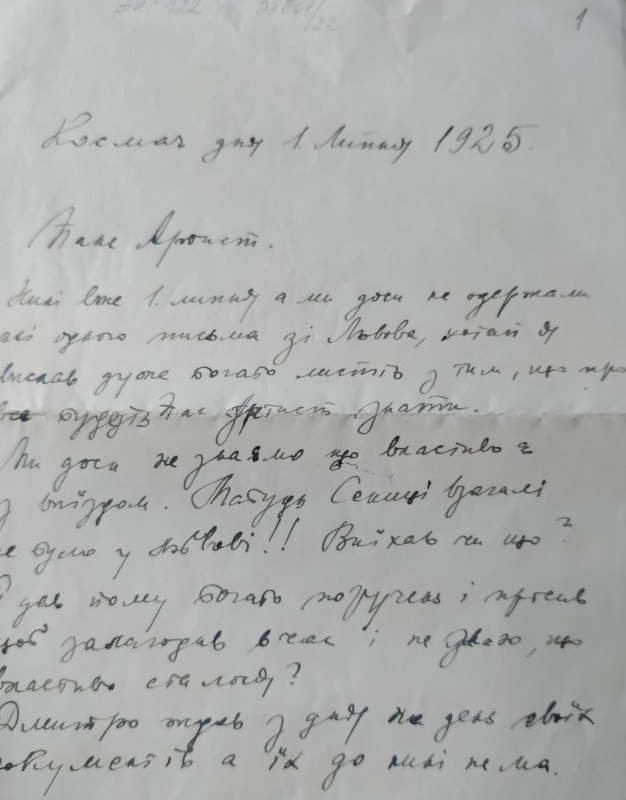 1
Космач дня 1. Липня 1925.
Пане Артист.
Нині вже 1. липня а ми доси не одержали
ані одного письма зі Львова, хотай я
вислав дуже богато листів з тим, що про
все будуть Пан Артист знати.
Ми доси не знаємо що властиво є
з виїздом. Мабудь Сениці взагалі
не було у Львові!! Виїхав чи що?
Я дав йому богато поручень і просив
щоб залагодив в час і не знаю, що
властиво сталося?
Дмитро ждав з дня на день своїх
документів а їх до нині нема.